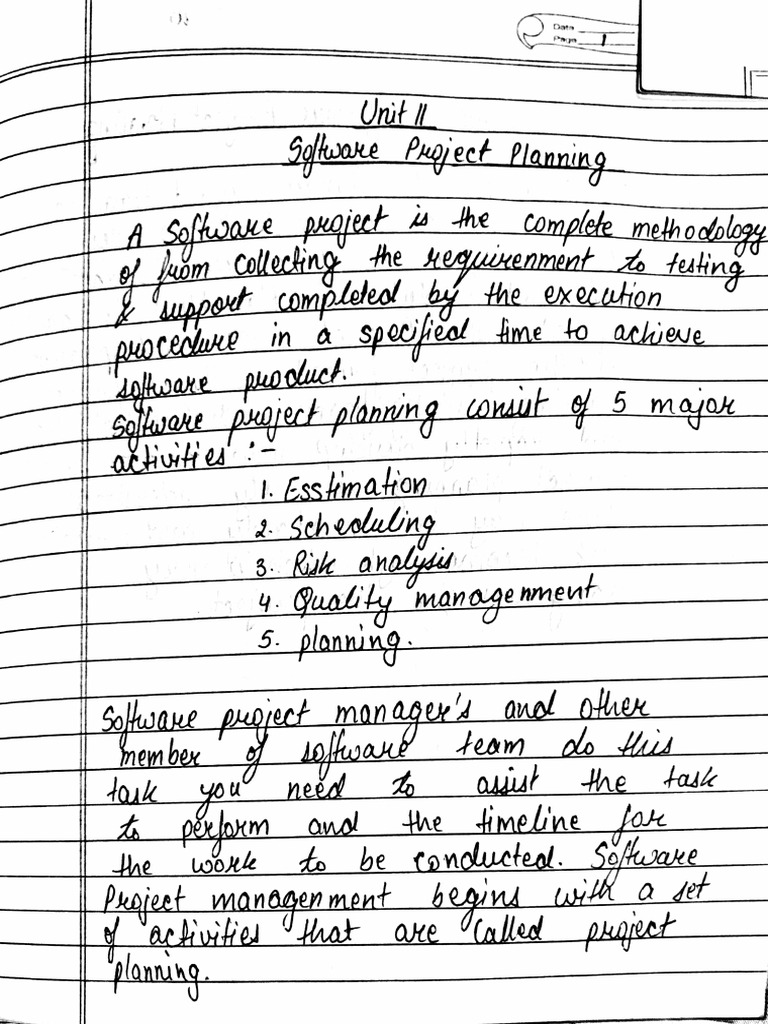 Date
Page 1
Unit II
Software Project Planning
A Software project is the complete methodology
of from collecting the requirenment to testing
& support completed by the execution
procedure in a specified time to achieve
software product.
Software project planning consist of 5 major
activities :-
1. Esstimation
2. Scheduling
3. Risk analysis
4. Quality managenment
5. planning.
Software project manager's and other
member of software team do this
task you need to assist the task
to perform and the timeline for
the work to be conducted. Software
Project managenment begins with a set
of activities that are called project
planning.